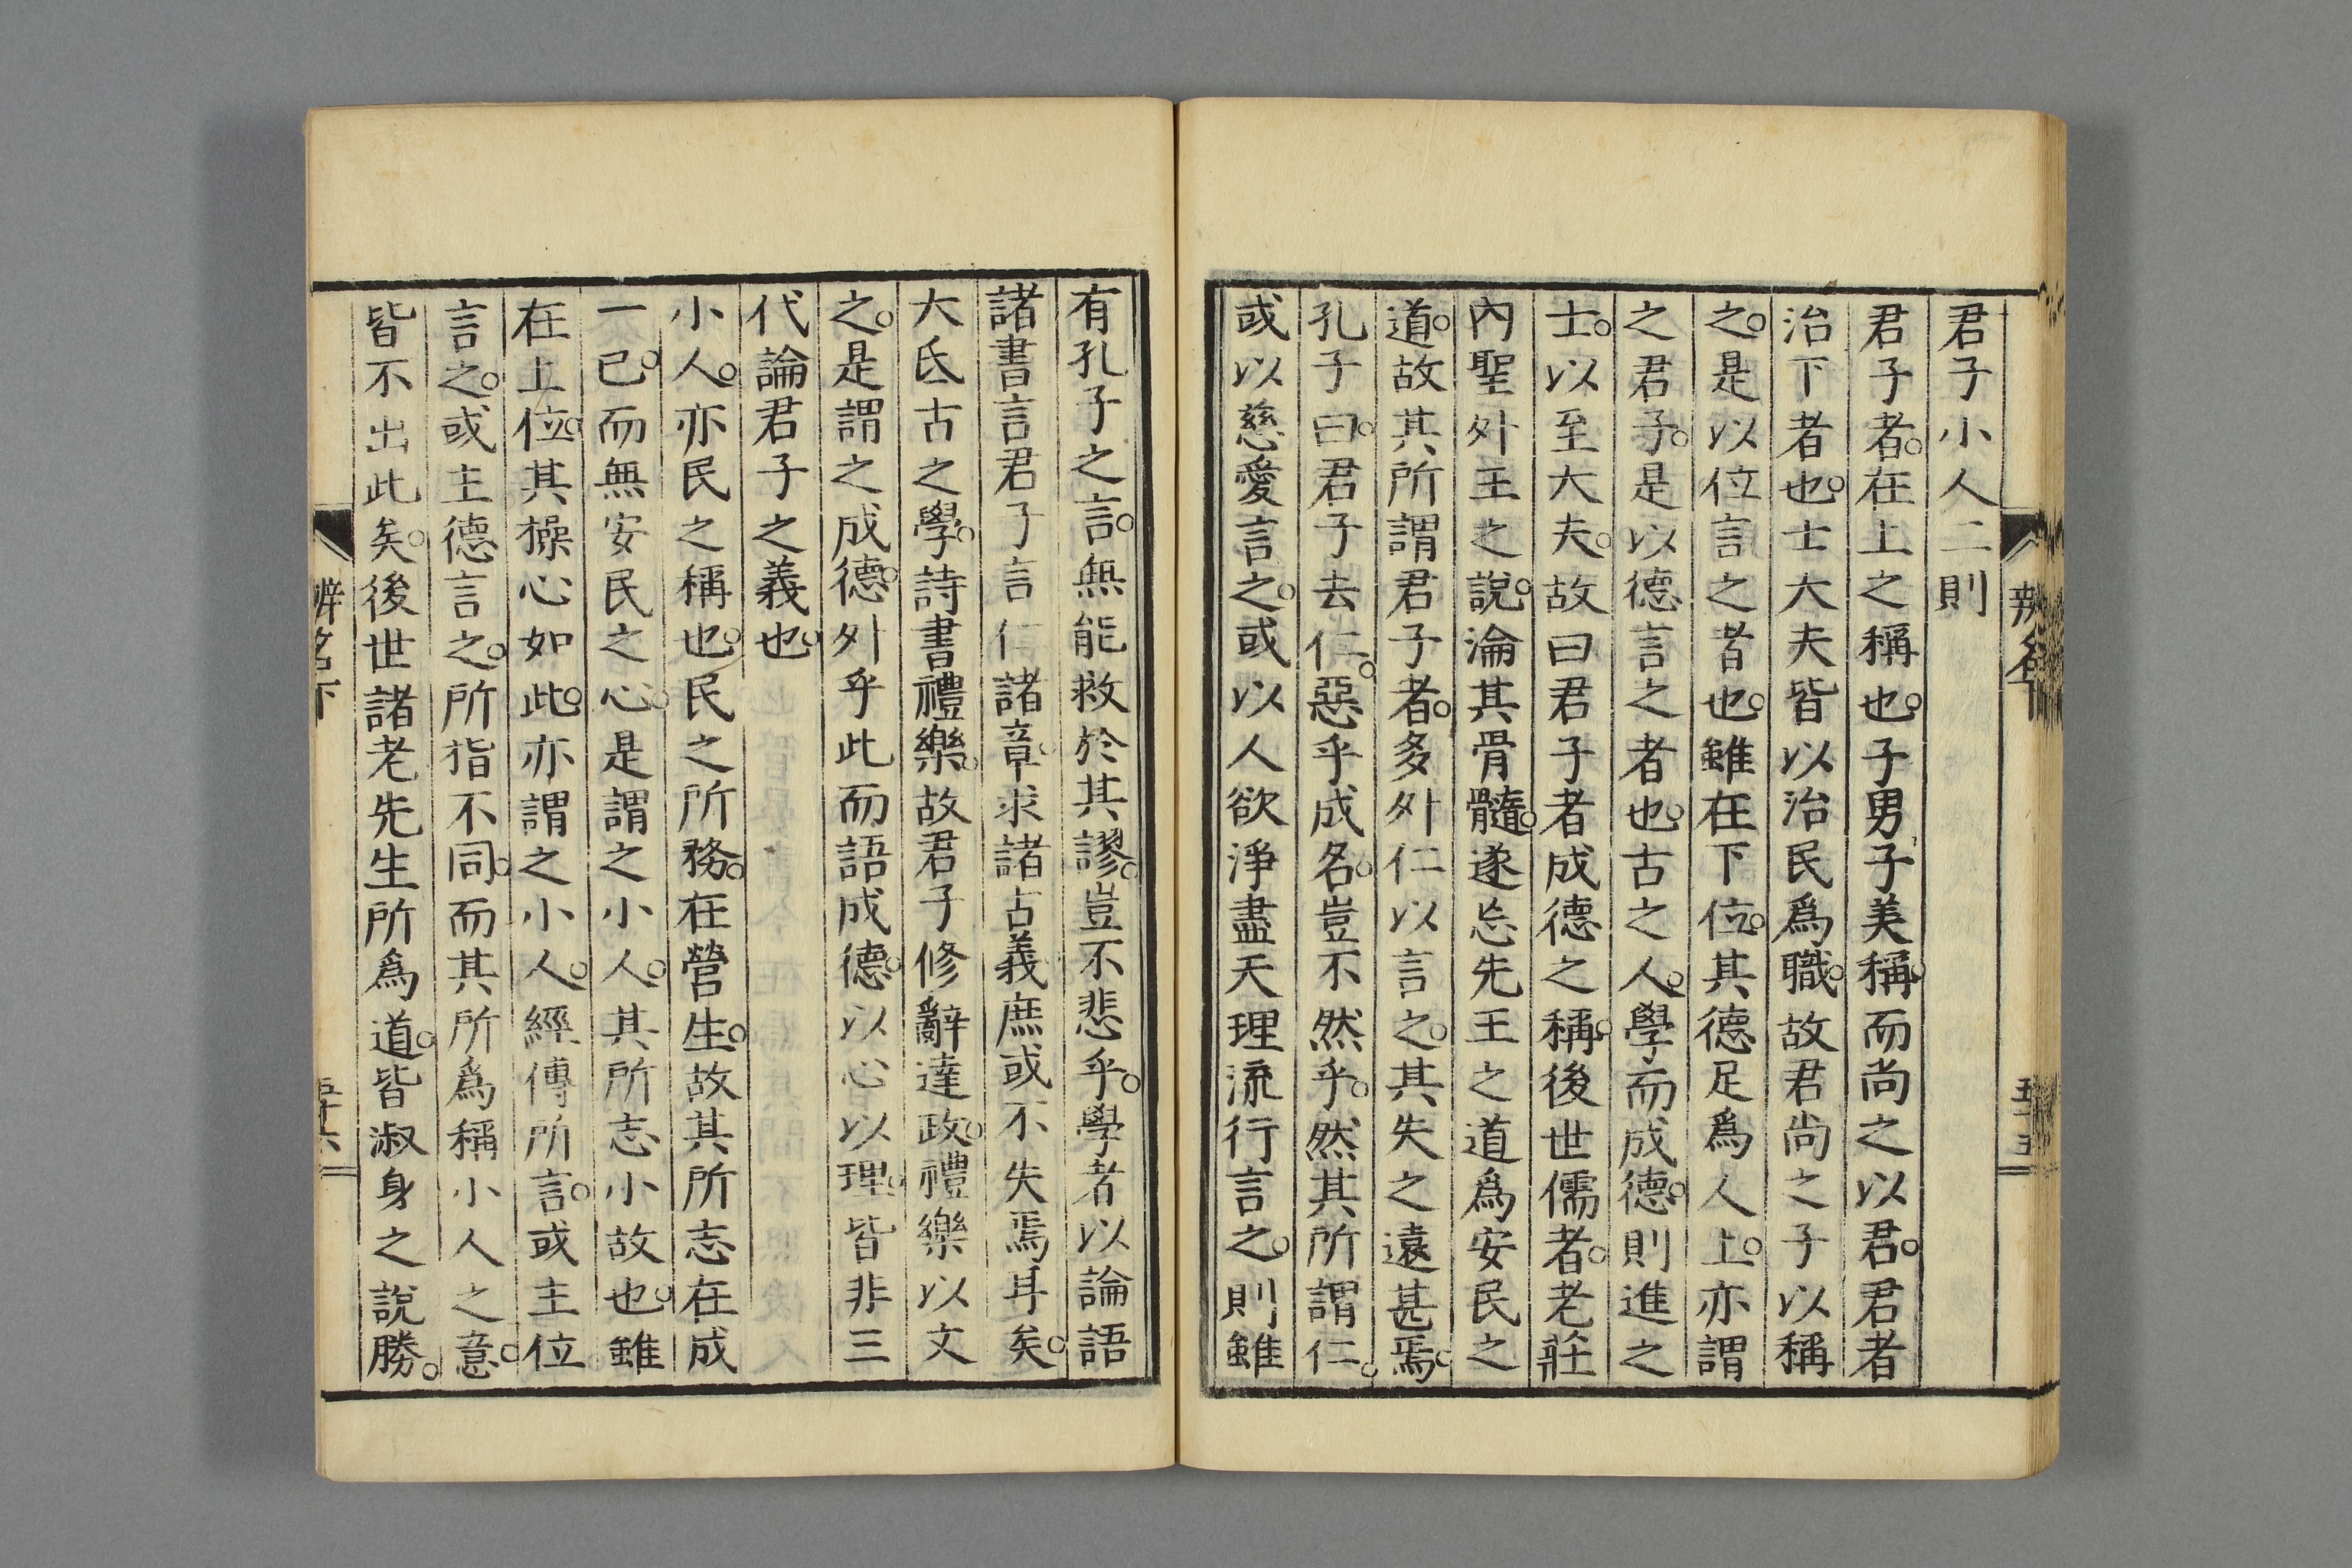 君子小人二則
君子者。在上之稱也。子男子美稱。而尚之以君。君者
治下者也。士大夫皆以治民爲職。故君尚之子以稱
之。是以位言之者也。雖在下位。其德足爲人上。亦謂
之君子。是以德言之者也。古之人。學而成德。則進之
士。以至大夫。故曰君子者成德之稱。後世儒者。老莊
內聖外王之說。淪其骨髓。遂忘先王之道爲安民之
道。故其所謂君子者。多外仁以言之。其失之遠甚焉。
孔子曰。君子去仁。惡乎成名。豈不然乎。然其所謂仁。
或以慈愛言之。或以人欲淨盡天理流行言之。則雖
有孔子之言。無能救於其謬。豈不悲乎。學者以論語
諸書言君子言仁諸章。求諸古義庶或不失焉耳矣。
大氐古之學。詩書禮樂。故君子修辭達政。禮樂以文
之。是謂之成德。外乎此而語成德。以心以理。皆非三
代論君子之義也。
小人。亦民之稱也。民之所務。在營生。故其所志在成
一己。而無安民之心。是謂之小人。其所志小故也。雖
在上位。其操心如此。亦謂之小人。經傳所言。或主位
言之。或主德言之。所指不同。而其所爲稱小人之意。
皆不出此矣。後世諸老先生所爲道。皆淑身之說勝。
辨名下